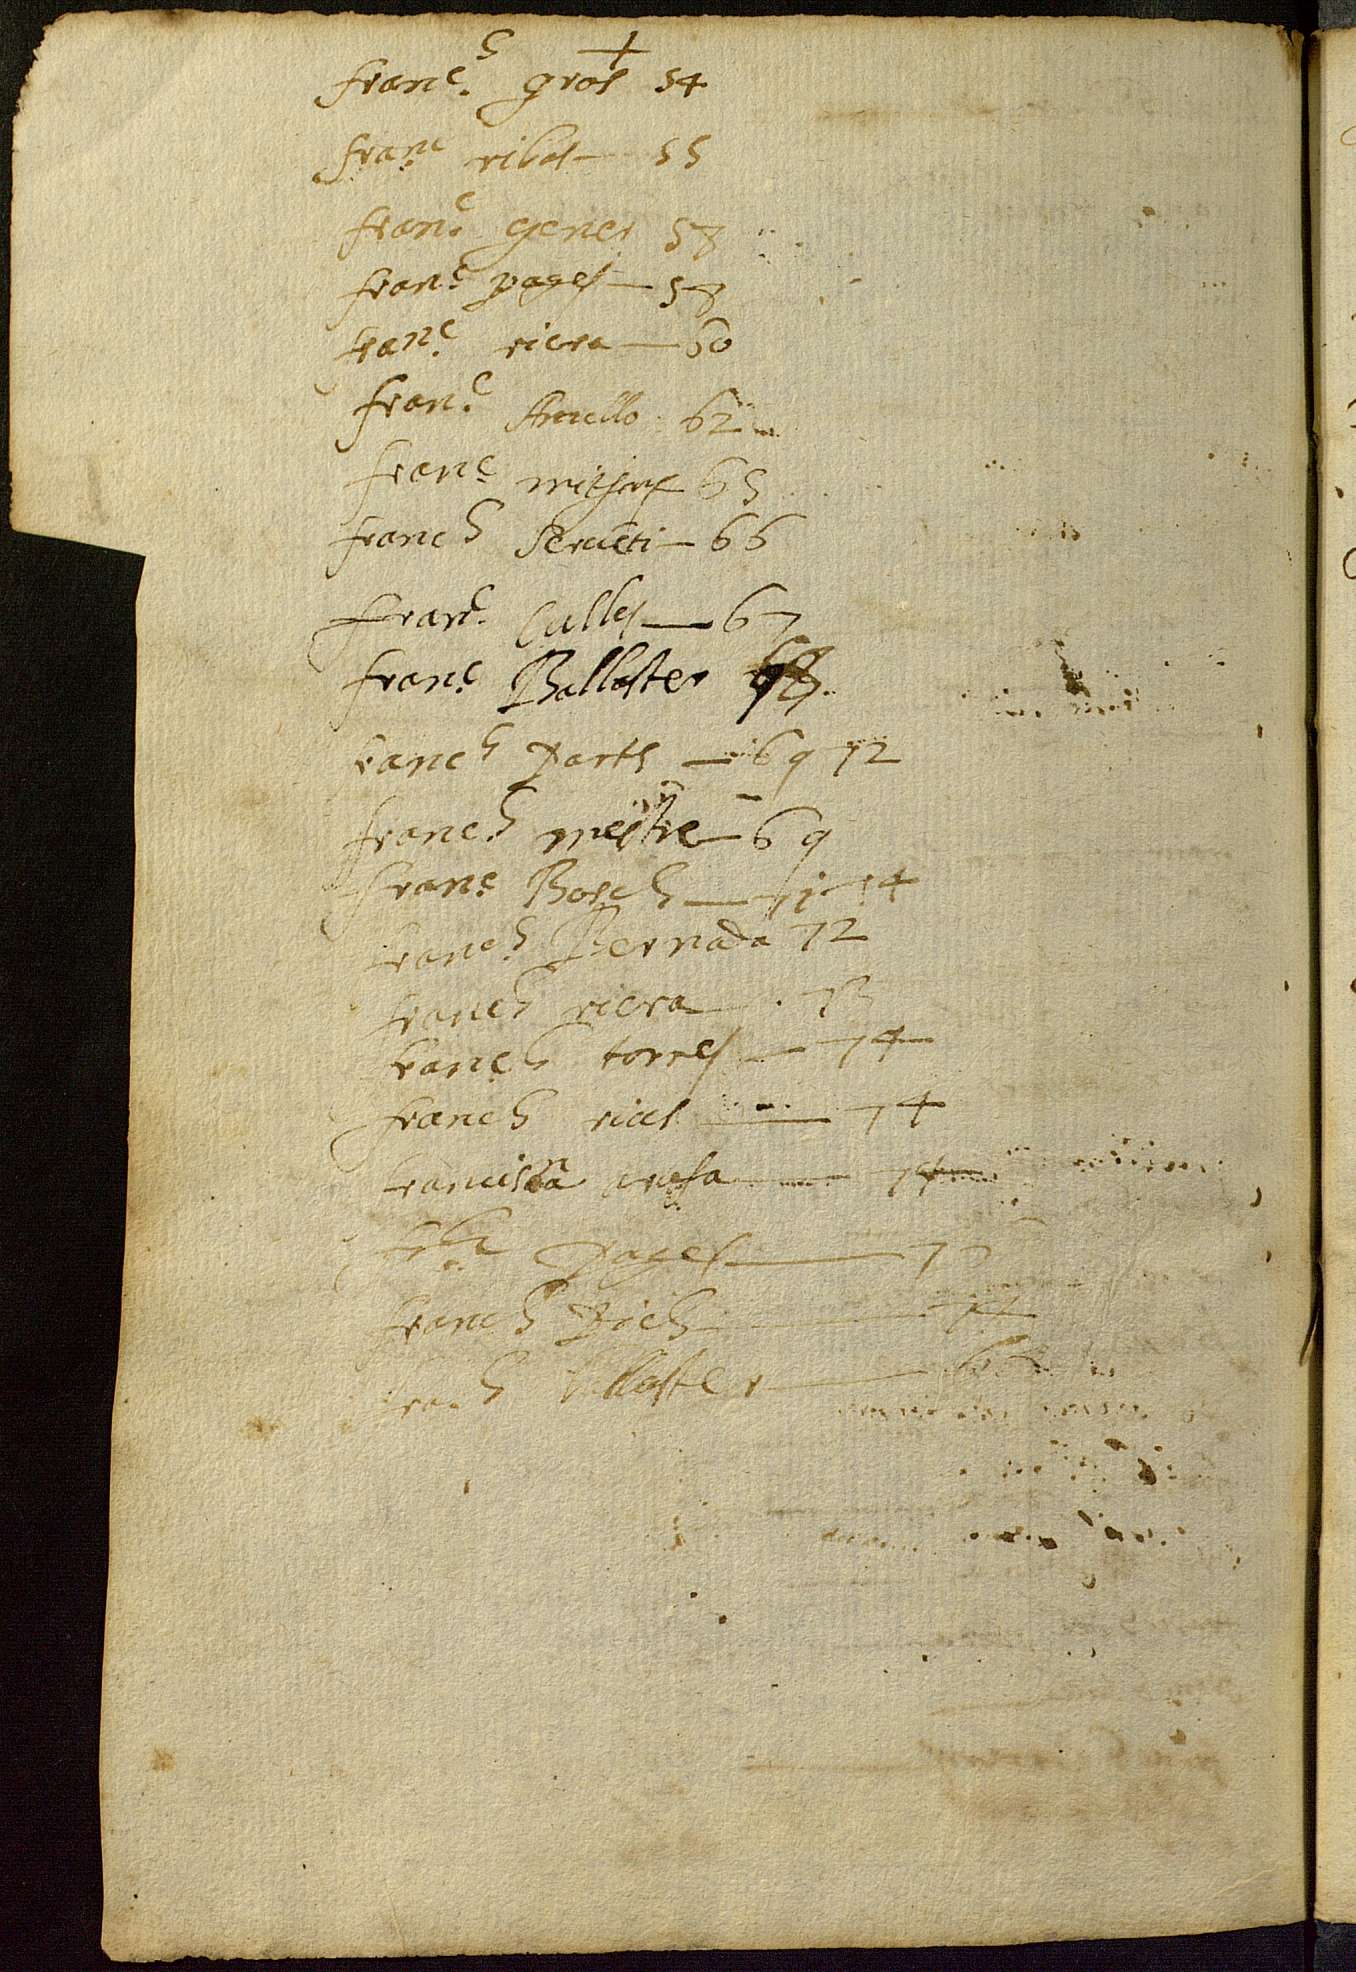 +
franch gros 54
franc ribas 55
franc gener 57
franc pages 57
franc riera 60
franc 62
franc mitjans 65
franch servēti 66
franc Culles 67
franc Ballester 68
franch Parts 69 72
franch mestre 69
franc Bosch 71 74
franch Bernada 72
franch riera 73
franch torres 74
franch rials 74
francischa 74
Pages
franch Pich
franch